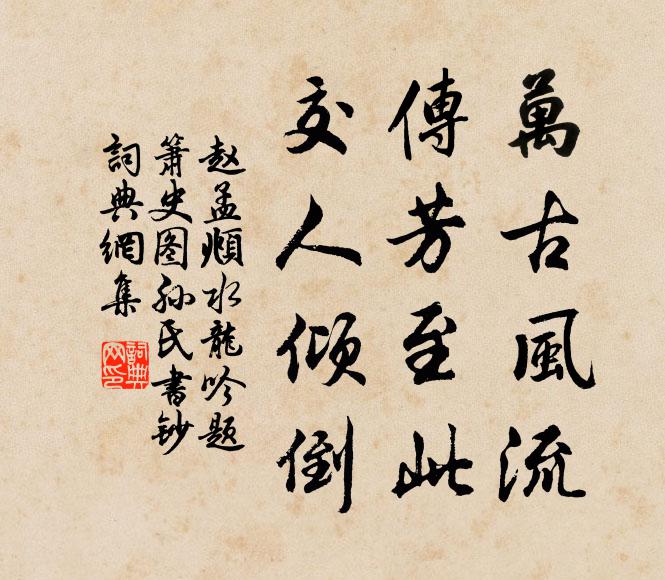 萬古風流
傳芳至此
交人傾倒
赵孟頫水龍吟题
簫史图孙氏書鈔
詞典網集
詞典
网印